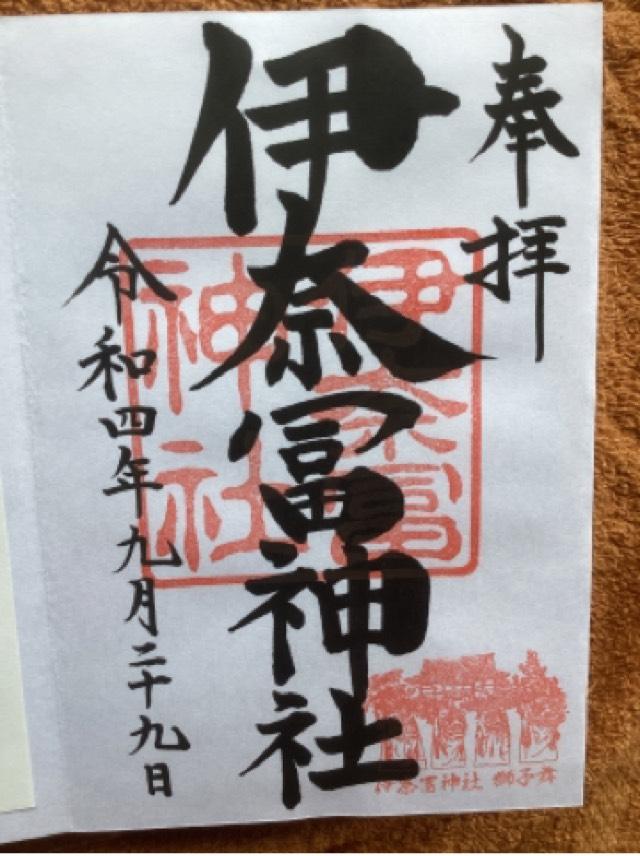 奉拝
伊奈冨神社
令和四年九月二十九日
伊奈冨
神社
伊奈冨神社 獅子舞